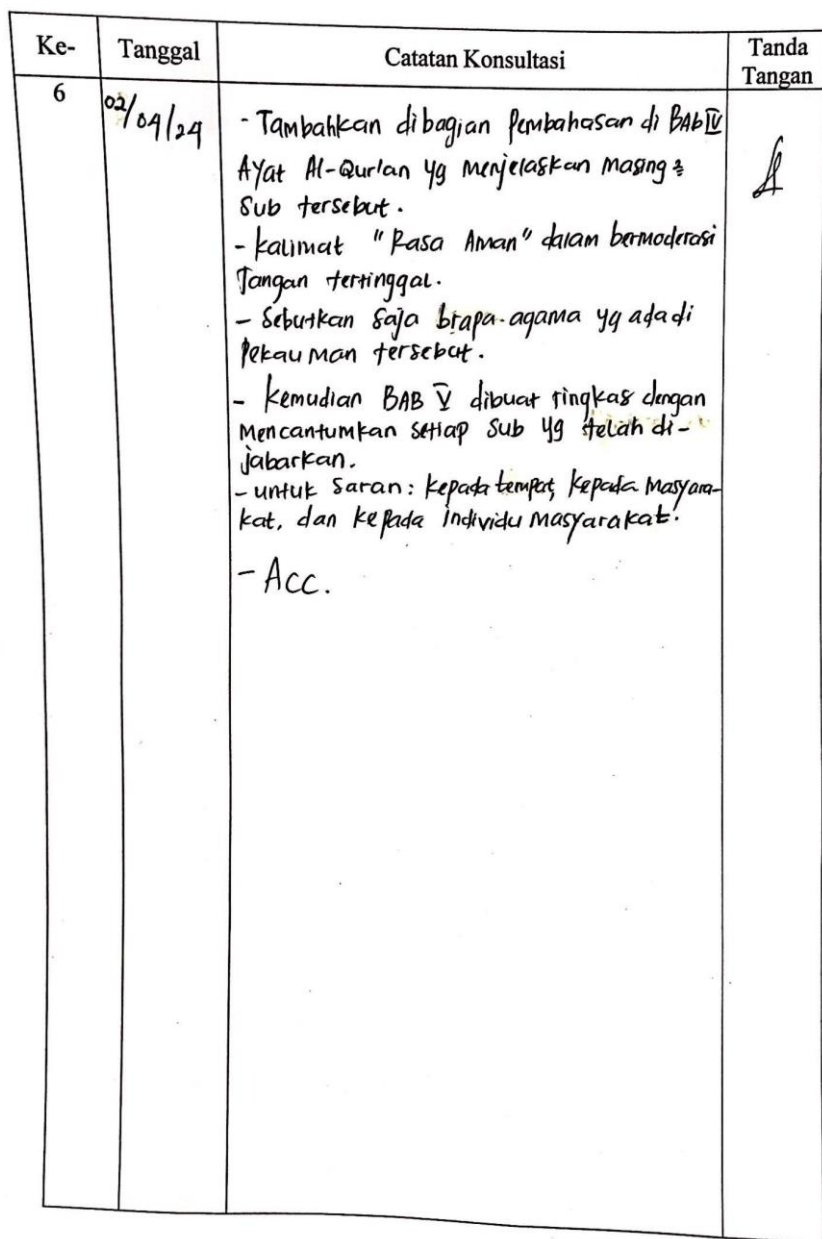 Ke- Tanggal Catatan Konsultasi Tanda Tangan
6 02/04/24
- Tambahkan dibagian Pembahasan di BAb IV
Ayat Al-Qur'an yg menjelaskan masing2
Sub tersebut.
- kalimat "Rasa Aman" dalam bermoderasi
Jangan tertinggal.
- Sebutkan saja brapa agama yg ada di
Pekauman tersebut.
- kemudian BAB V dibuat ringkas dengan
Mencantumkan setiap Sub yg telah di-
jabarkan.
- untuk Saran: kepada tempat, kepada Masyara-
kat, dan kepada individu masyarakat.
- Acc.